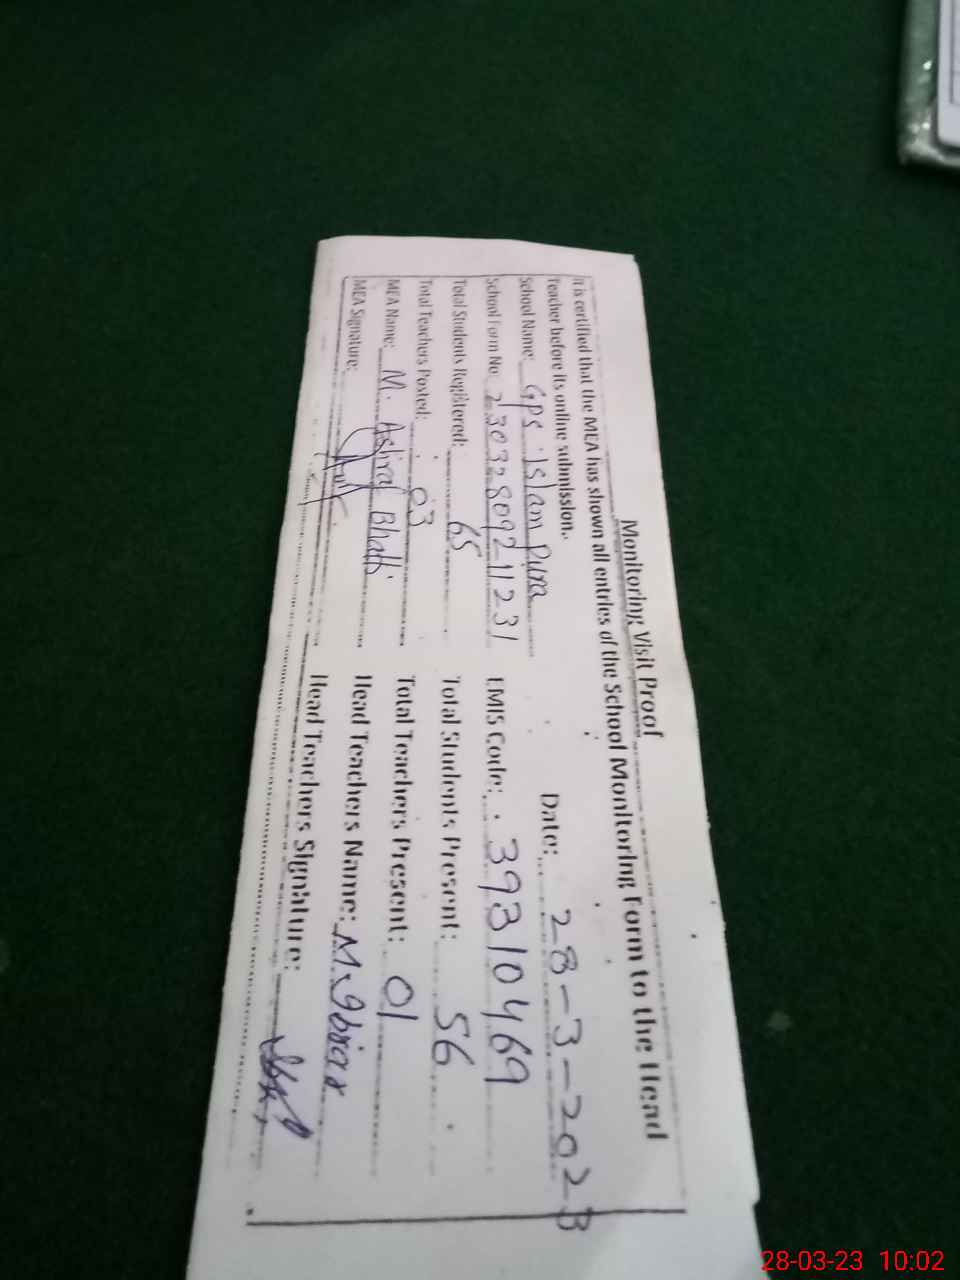 Monitoring Visit Proof
It is certified that the MEA has shown all entries of the School Monitoring Form to the Head
Teacher before its online submission.
Date: 28-3-2023
School Name: Gps Islam Pura
School Form No: EMIS Code: 39310469
Total Students Registered: 65 Total Students Present: 56
Total Teachers Posted: 03 Total Teachers Present: 01
MEA Name: M. Ashraf Bhatti Head Teachers Name: M.
MEA Signature: Head Teachers Signature:
28-03-23 10:02